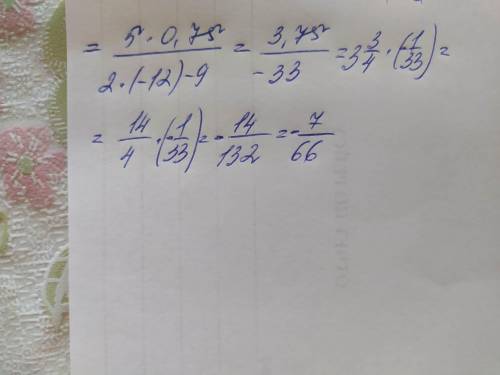 = 5 · 0,75 / 2 · (-12) - 9 = 3,75 / -33 = 3 3/4 · (-1/33) =
= 14/4 · (-1/33) = - 14/132 = - 7/66